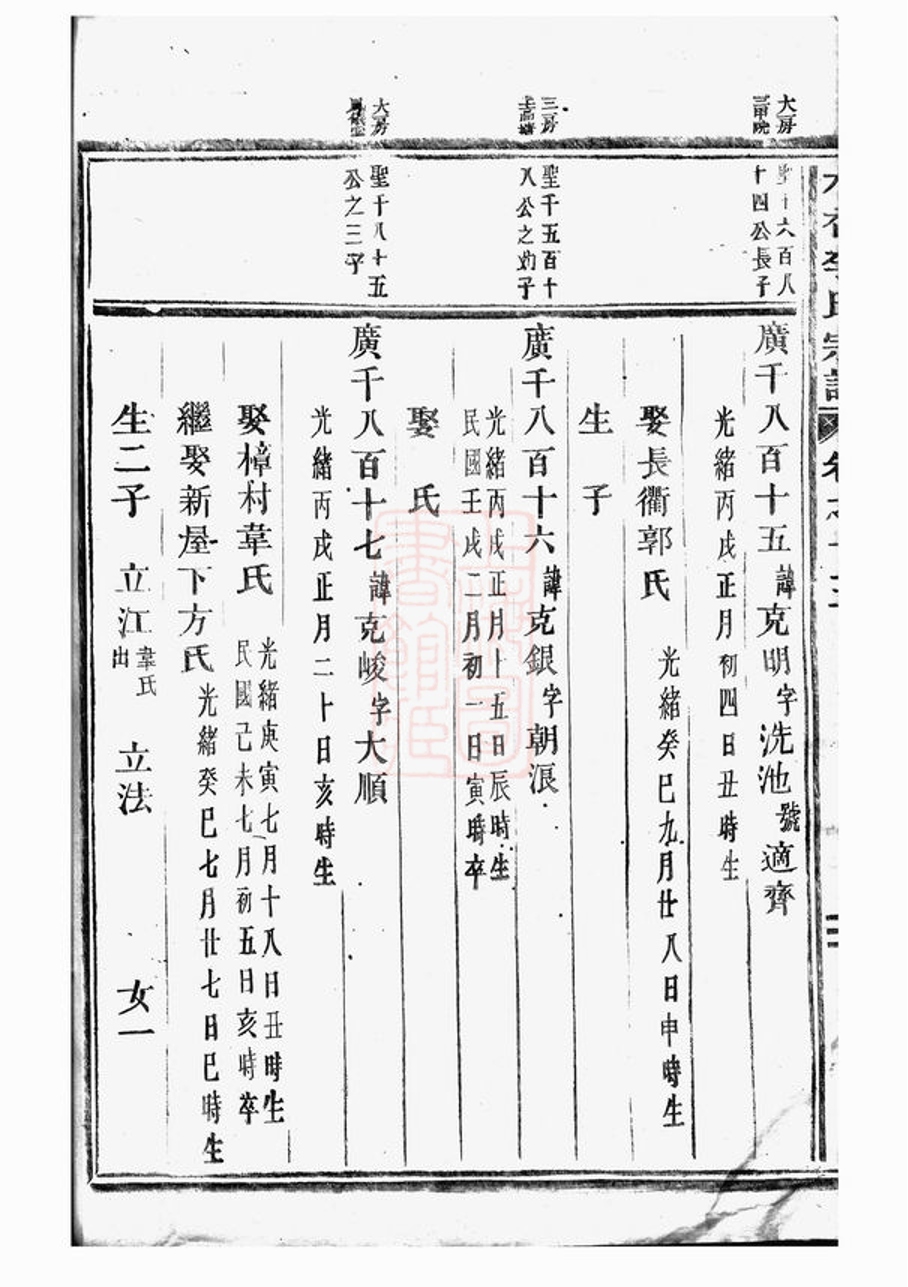 李氏宗譜
大房
聖千六百八
十四公長子
廣千八百十五諱克明字洗池號適齊
光緒丙戌正月初四日丑時生
娶長衢郭氏 光緒癸巳九月廿八日申時生
生子
三房
聖千五百十
八公之幼子
廣千八百十六諱克銀字朝浪
光緒丙戌正月十五日辰時生
民國壬戌二月初一日寅時卒
娶 氏
大房
聖千八十五
公之三子
廣千八百十七諱克峻字大順
光緒丙戌正月二十日亥時生
娶樟村韋氏 光緒庚寅七月十八日丑時生
民國己未七月初五日亥時卒
繼娶新屋下方氏 光緒癸巳七月廿七日巳時生
生二子 立江 韋氏出 立法 女一